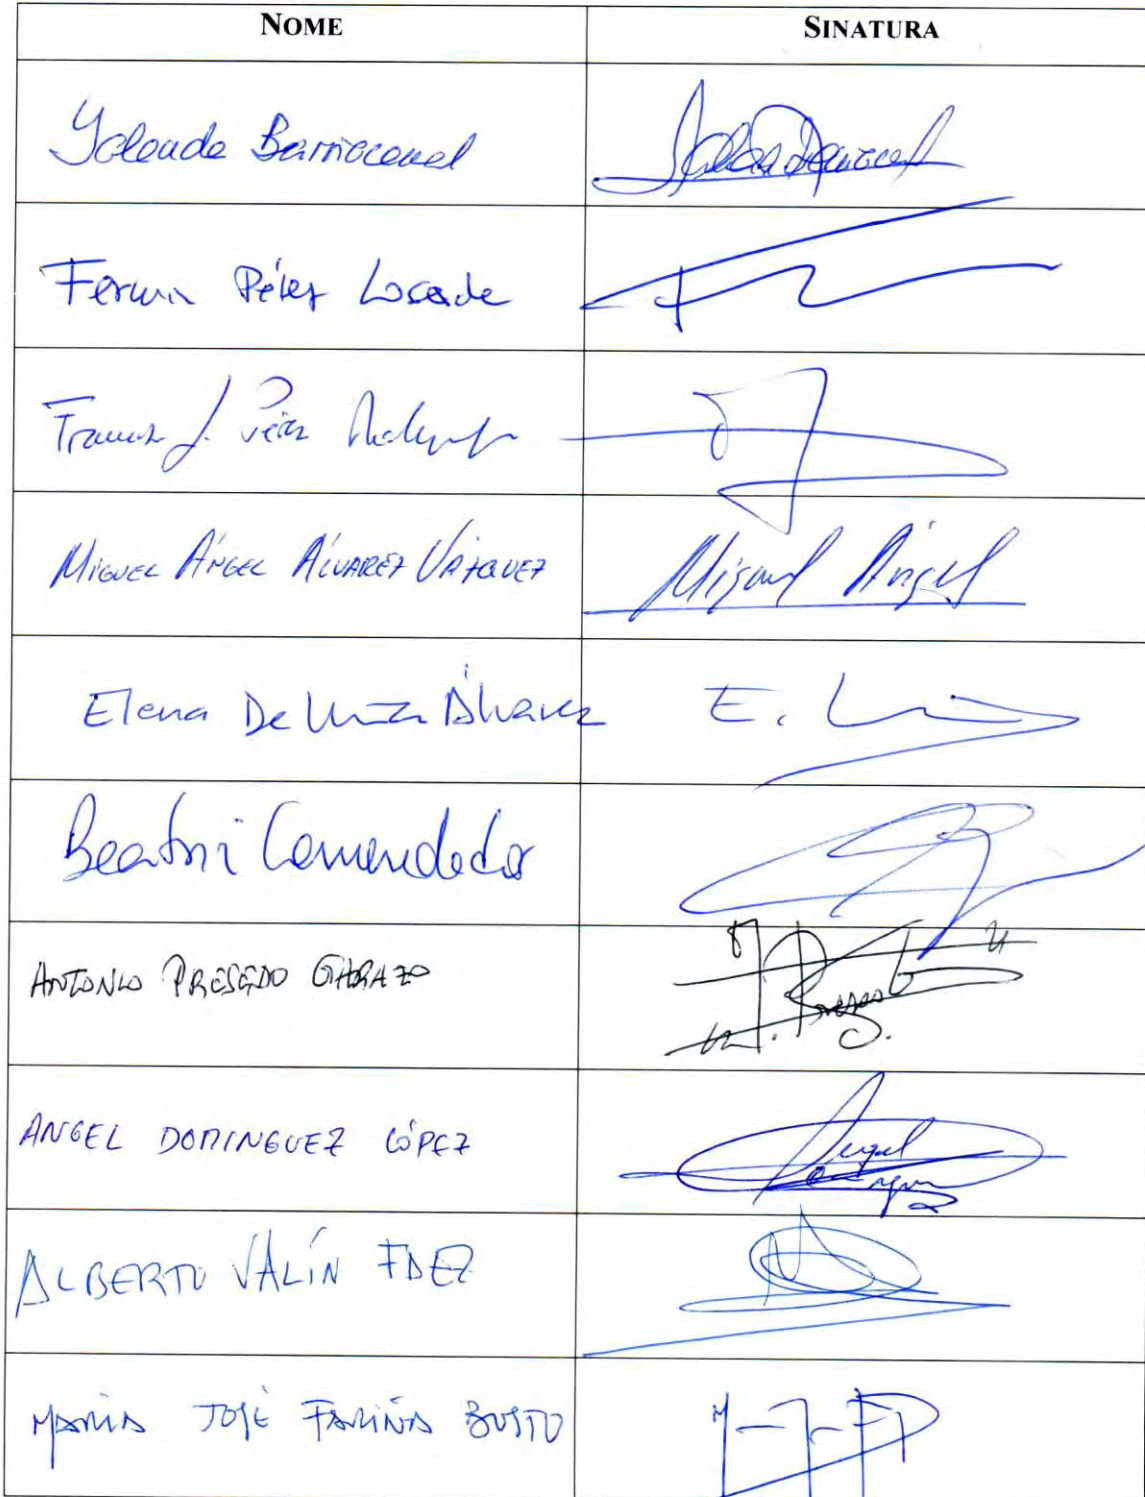 NOME SINATURA
Yolanda Barriocanal
Fermín Pérez Losada
Francisco J. Pérez Rodríguez
MIGUEL ÁNGEL ÁLVAREZ VÁZQUEZ Miguel Ángel
Elena De Uña Álvarez E.
Beatriz Comendador
ANTONIO PRESEDO GARAZO
ANGEL DOMINGUEZ LÓPEZ Angel
ALBERTO VALÍN FDEZ
MARIA JOSÉ FARIÑA BUSTO